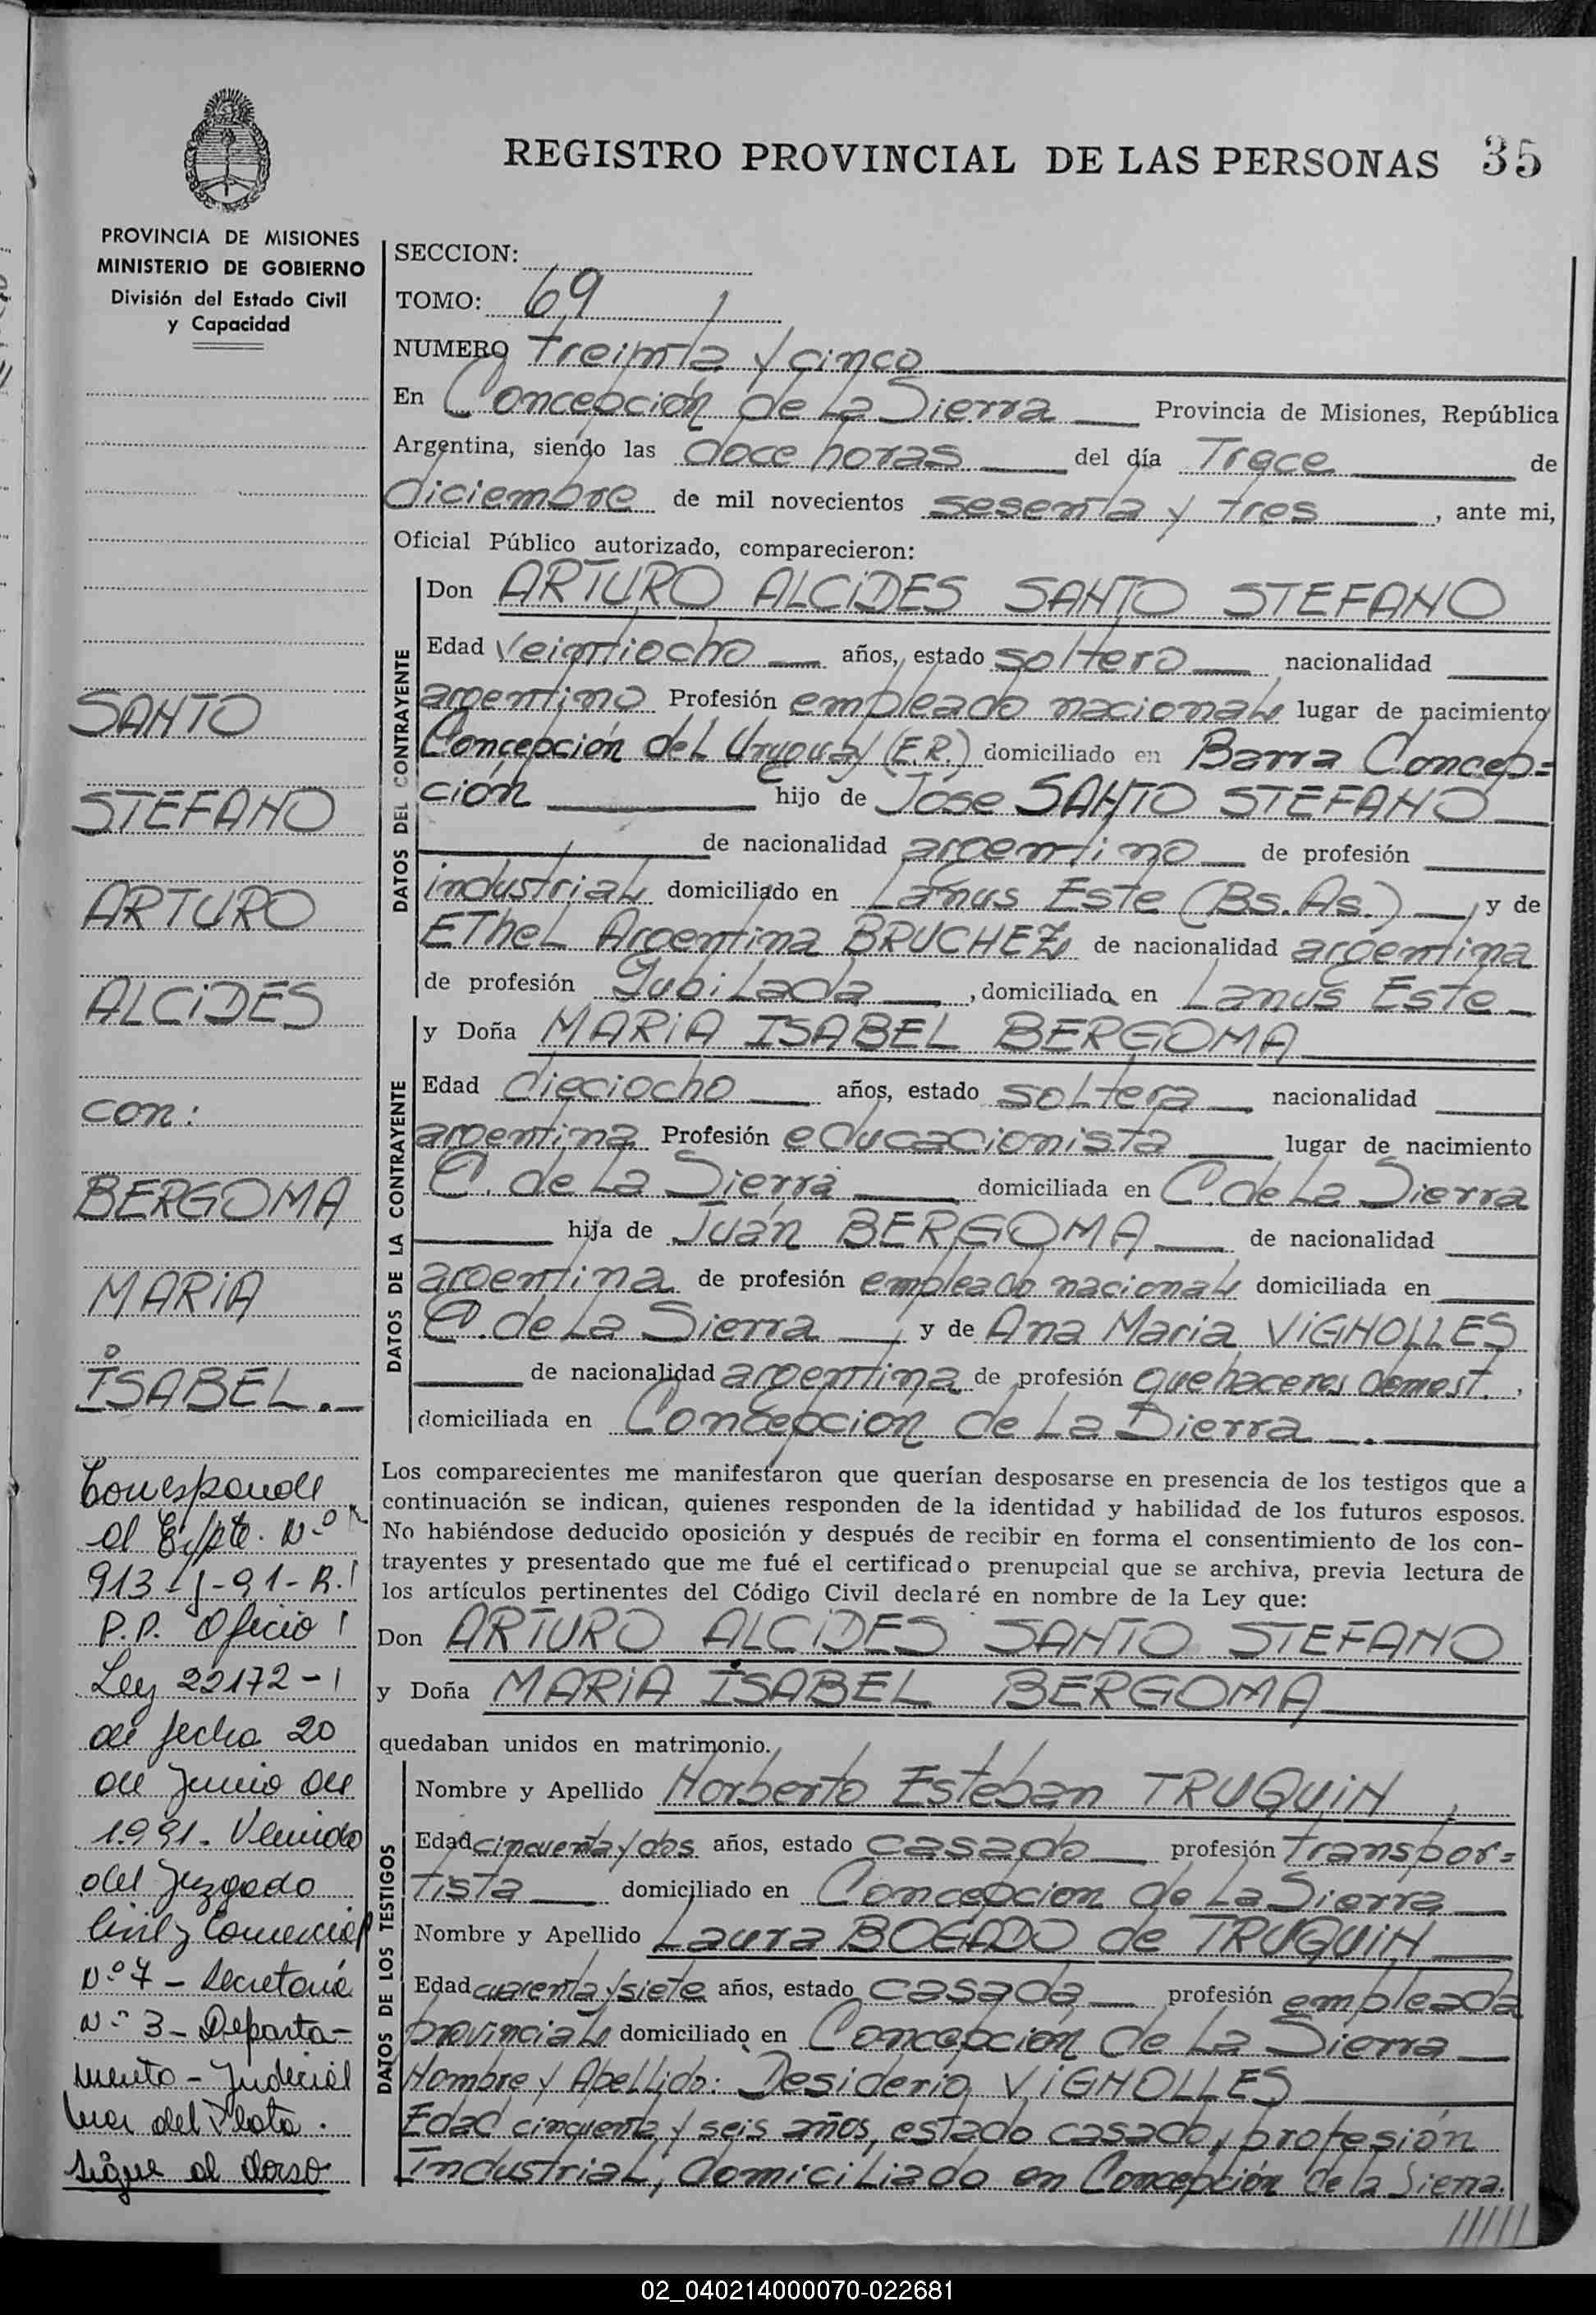 REGISTRO PROVINCIAL DE LAS PERSONAS 35
PROVINCIA DE MISIONES
MINISTERIO DE GOBIERNO
División del Estado Civil
y Capacidad
SANTO
STEFANO
ARTURO
ALCIDES
con:
BERGOMA
MARIA
ISABEL.
Corresponde
al Expte. Nº
913-J-91-R.
P.P. Oficio
Ley 22172-
de fecha 20
de Junio de
1.991. Venido
del Juzgado
Civil y Comercial
Nº 7 - Secretaría
Nº 3 - Departa-
mento - Judicial
Mar del Plata.
Sigue al dorso
SECCION:
TOMO: 69
NUMERO Treinta y cinco
En Concepción de La Sierra Provincia de Misiones, República
Argentina, siendo las doce horas del día Trece de
diciembre de mil novecientos sesenta y tres, ante mi,
Oficial Público autorizado, comparecieron:
DATOS DEL CONTRAYENTE
Don ARTURO ALCIDES SANTO STEFANO
Edad veintiocho años, estado soltero nacionalidad
argentino Profesión empleado nacional lugar de nacimiento
Concepción del Uruguay (E.R.) domiciliado en Barra Concep=
ción hijo de Jose SANTO STEFANO
de nacionalidad argentino de profesión
industrial domiciliado en Lanus Este (Bs. As.) y de
Ethel Argentina BRUCHEZ de nacionalidad argentina
de profesión Jubilada, domiciliada en Lanus Este
DATOS DE LA CONTRAYENTE
y Doña MARIA ISABEL BERGOMA
Edad dieciocho años, estado soltera nacionalidad
argentina Profesión educacionista lugar de nacimiento
C. de La Sierra domiciliada en C. de La Sierra
hija de Juán BERGOMA de nacionalidad
argentina de profesión empleado nacional domiciliada en
C. de La Sierra y de Ana Maria VIGNOLLES
de nacionalidad argentina de profesión quehaceres domest.,
domiciliada en Concepción de La Sierra.
Los comparecientes me manifestaron que querían desposarse en presencia de los testigos que a
continuación se indican, quienes responden de la identidad y habilidad de los futuros esposos.
No habiéndose deducido oposición y después de recibir en forma el consentimiento de los con-
trayentes y presentado que me fué el certificado prenupcial que se archiva, previa lectura de
los artículos pertinentes del Código Civil declaré en nombre de la Ley que:
Don ARTURO ALCIDES SANTO STEFANO
y Doña MARIA ISABEL BERGOMA
quedaban unidos en matrimonio.
DATOS DE LOS TESTIGOS
Nombre y Apellido Norberto Esteban TRUQUIN,
Edad cincuenta y dos años, estado casado profesión Transpor=
tista domiciliado en Concepcion de La Sierra
Nombre y Apellido Laura BOGADO de TRUQUIN
Edad cuarenta y siete años, estado casada profesión empleada
provincial domiciliado en Concepción de La Sierra
Nombre y Apellido: Desiderio VIGNOLLES
Edad cincuenta y seis años, estado casado, profesión
Industrial, domiciliado en Concepción de la Sierra.
//////
02_040214000070-022681